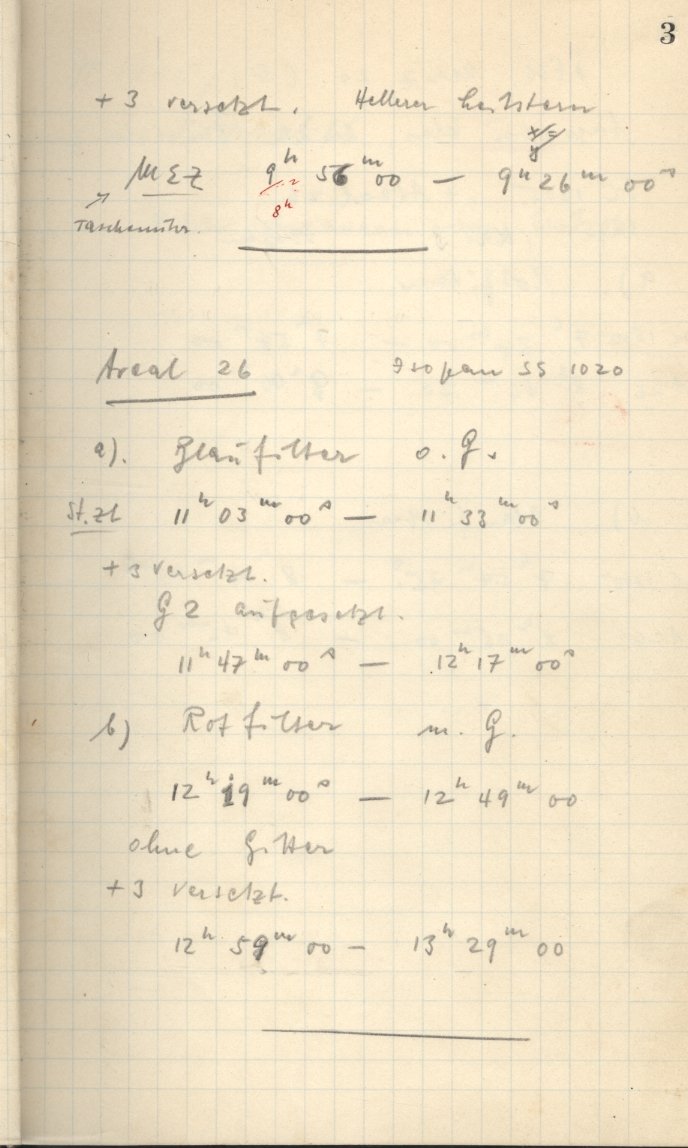 3
+ 3 versetzt. Hellerer Leitstern
x/=
y
MEZ 9h 56m 00 — 9h 26m 00s
? 8h
Taschenuhr.
Areal 26 Isopan SS 1020
a). Blaufilter o. G.
St.zt 11h 03m 00s — 11h 33m 00s
+ 3 versetzt.
G 2 aufgesetzt.
11h 47m 00s — 12h 17m 00s
b) Rotfilter m. G.
12h 19m 00s — 12h 49m 00
ohne Gitter
+ 3 versetzt.
12h 59m 00 — 13h 29m 00